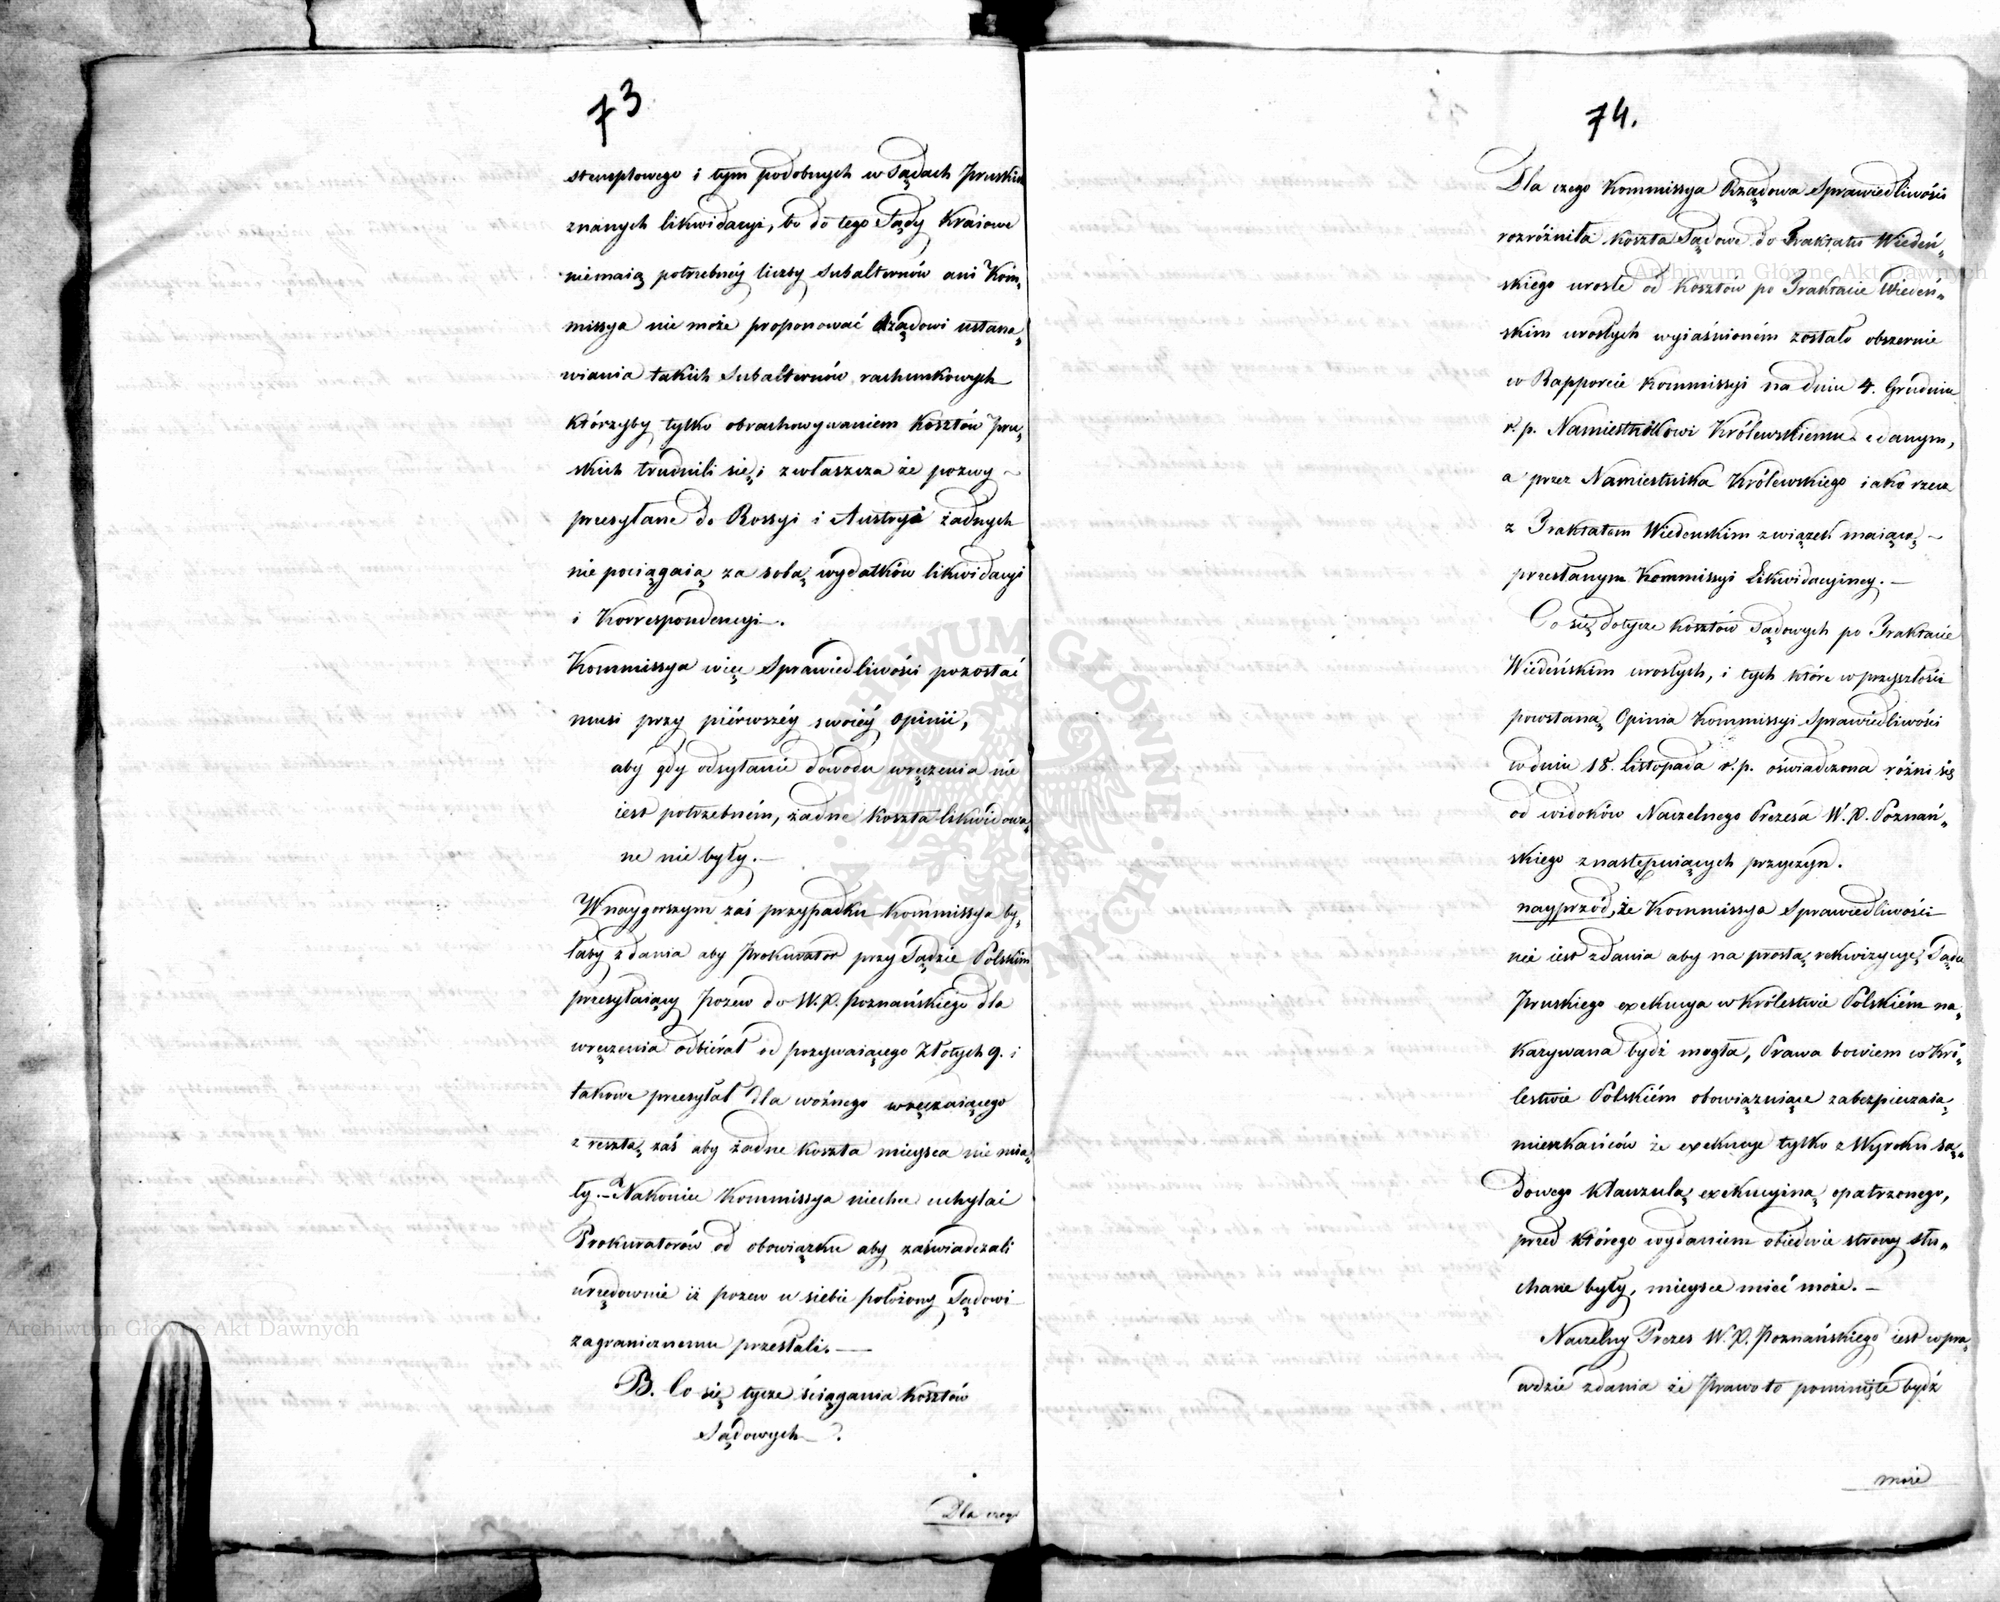 73
stemplowego i tym podobnych w Sądach Pruskich
znanych likwidacyi, bo do tego Sądy Kraiowe
niemaią potrzebnéy liczby Subalternów ani Kom„
missya nie może proponować Rządowi ustana„
wiania takich Subalternów rachunkowych
którzyby tylko obrachowywaniem Kosztów Pru„
skich trudnili się, i zwłaszcza że pozwy
przesyłane do Rossyi i Austryi żadnych
nie pociągaią za sobą wydatków likwidacyi
i Korrespondencyi.
Kommissya więc Sprawiedliwości pozostać
musi przy piérwszéy swoiéy opinii,
aby gdy odsyłanie dowodu wręczenia nie
iest potrzebném, żadne koszta likwidowa„
ne nie były.—
W naygorszym zaś przypadku Kommissya by„
łaby zdania aby Prokurator przy Sądzie Polskim
przesyłaiący Pozew do W. X. Poznańskiego dla
wręczenia odbiérał od pozywaiącego Złotych 9. i
takowe przesyłał dla woźnego wręczaiącego
z resztą zaś aby żadne koszta mieysca nie mia„
ły.— Nakoniec Kommissya niechce uchylać
Prokuratorów od obowiązku aby zaświadczali
urzędownie iż pozew u siebie położony Sądowi
zagranicznemu przesłali.—
B. Co się tycze ściągania Kosztów
Sądowych.
Dla czego
74.
Dla czego Kommissya Rządowa Sprawiedliwości
rozróżniła koszta Sądowe do Traktatu Wiedeń„
skiego urosłe od Kosztów po Traktacie Wiedeń„
skim urosłych wyiaśnioném zostało obszernie
w Rapporcie Kommissyi na dniu 4. Grudnia
r. p. Namiestnikowi Królewskiemu danym,
a przez Namiestnika Królewskiego iako rzecz
z Traktatem Wiedenskim związek maiącą
przesłanym Kommissyi Likwidacyiney.—
Co się dotycze kosztów Sądowych po Traktacie
Wiedeńskim urosłych, i tych które w przyszłości
powstaną Opinia Kommissyi Sprawiedliwości
w dniu 18. Listopada r. p. oświadczona różni się
od widoków Naczelnego Prezesa W. X. Poznań„
skiego z następuiących przyczyn.
nayprzód, że Kommissya Sprawiedliwości
nie iest zdania aby na prostą rekwizycyę Sądu
Pruskiego exekucya w Królestwie Polskiém na„
kazywana bydź mogła, Prawa bowiem w Kró„
lestwie Polskiém obowiązuiące zabezpieczaią
mieszkańców że exekucye tylko z Wyroku Są„
dowego klauzulą exekucyiną opatrzonego,
przed którego wydaniem obiedwie strony słu„
chane były, mieysce mieć może.—
Naczelny Prezes W. X. Poznańskiego iest wpra„
wdzie zdania że Prawo to pominięte bydź
może
Archiwum Główne Akt Dawnych
Archiwum Główne Akt Dawnych
ARCHIWUM GŁÓWNE AKT DAWNYCH